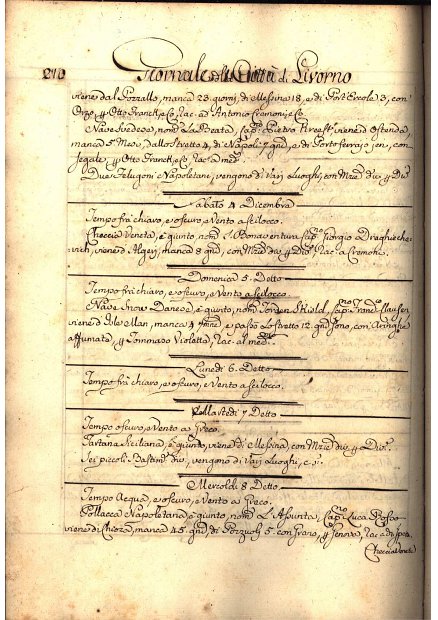 210 Giornale della Città di Livorno
viene dal Pozzallo, manca 23. giorni, di Messina 18, e di Port'Ercole 3, con
Orzo, Otto Franck, e Co, rac. ad Antonio Cremoni, e Co.
Nave Svedese, nom La Beata, Cap. Pietro viene d'Ostenda,
manca 5. Mesi, dallo Stretto 4, di Napoli 7 gni, e di Portoferrajo jeri, con
Segale, Otto Franck, e Co. rac. a med.
Due Feluconi Napoletani, vengono di Varj Luoghi, con Mzie div.
Sabato 4 Dicembre
Tempo frà chiaro, e oscuro, e Vento a scilocco.
Checcia Veneta, è giunto, nom. S. Bonaventura, Cap.no Giorgio
viene d'Algeri, manca 8 gni, con Mzie div. rac. a Cremoni.
Domenica 5. Detto
Tempo frà chiaro, e oscuro, e Vento a scilocco.
Nave Snow Danese, è giunto, nom. Cap.no
viene d'Isle Man, manca e passò lo stretto 12. gni sono, con Aringhe
affumate, Tommaso Violetta, rac. al med.mo
Lunedì 6. Detto
Tempo frà chiaro, e oscuro, e Vento a scilocco.
Martedì 7 Detto
Tempo oscuro, e Vento a Greco.
Tartana Siciliana, è giunto, viene di Messina, con Mzie div. Div.
Sei piccoli Bastim. div. vengono di Varj Luoghi, c. s.
Mercoldì 8 Detto
Tempo Acqua, e oscuro, e Vento a Greco.
Pollacca Napoletana è giunto, nom. L'Assunta, Cap.no Luca
viene di manca 45 gni, di Pozzuoli 5. con Grano, Genova,
Checcia Veneta